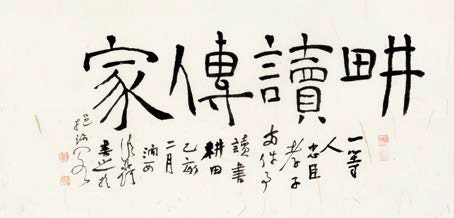 畊讀傳家
一等
人忠臣
孝子
両件事
讀書
耕田
己亥
二月